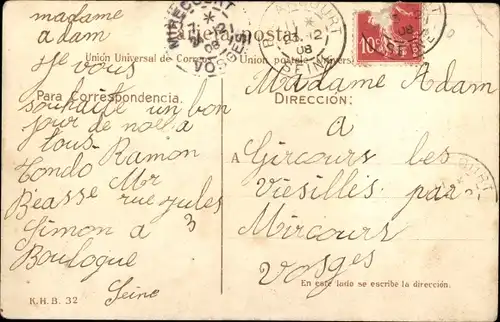 Tarjeta postal
Unión Universal de Correos
Union postale Universelle
Para Correspondencia.
DIRECCIÓN:
madame
adam
Je vous
souhaite un bon
jour de noel a
tous
Ramon
Mr
rue jules
Simon a 3
Boulogue
Seine
Madame Adam
a
A Gircours les
Viesilles par
Mircours
Vosges
En este lado se escribe la dirección.
K.H.B. 32
MIRECOURT
VOSGES
08
23 12
08
SEINE
10